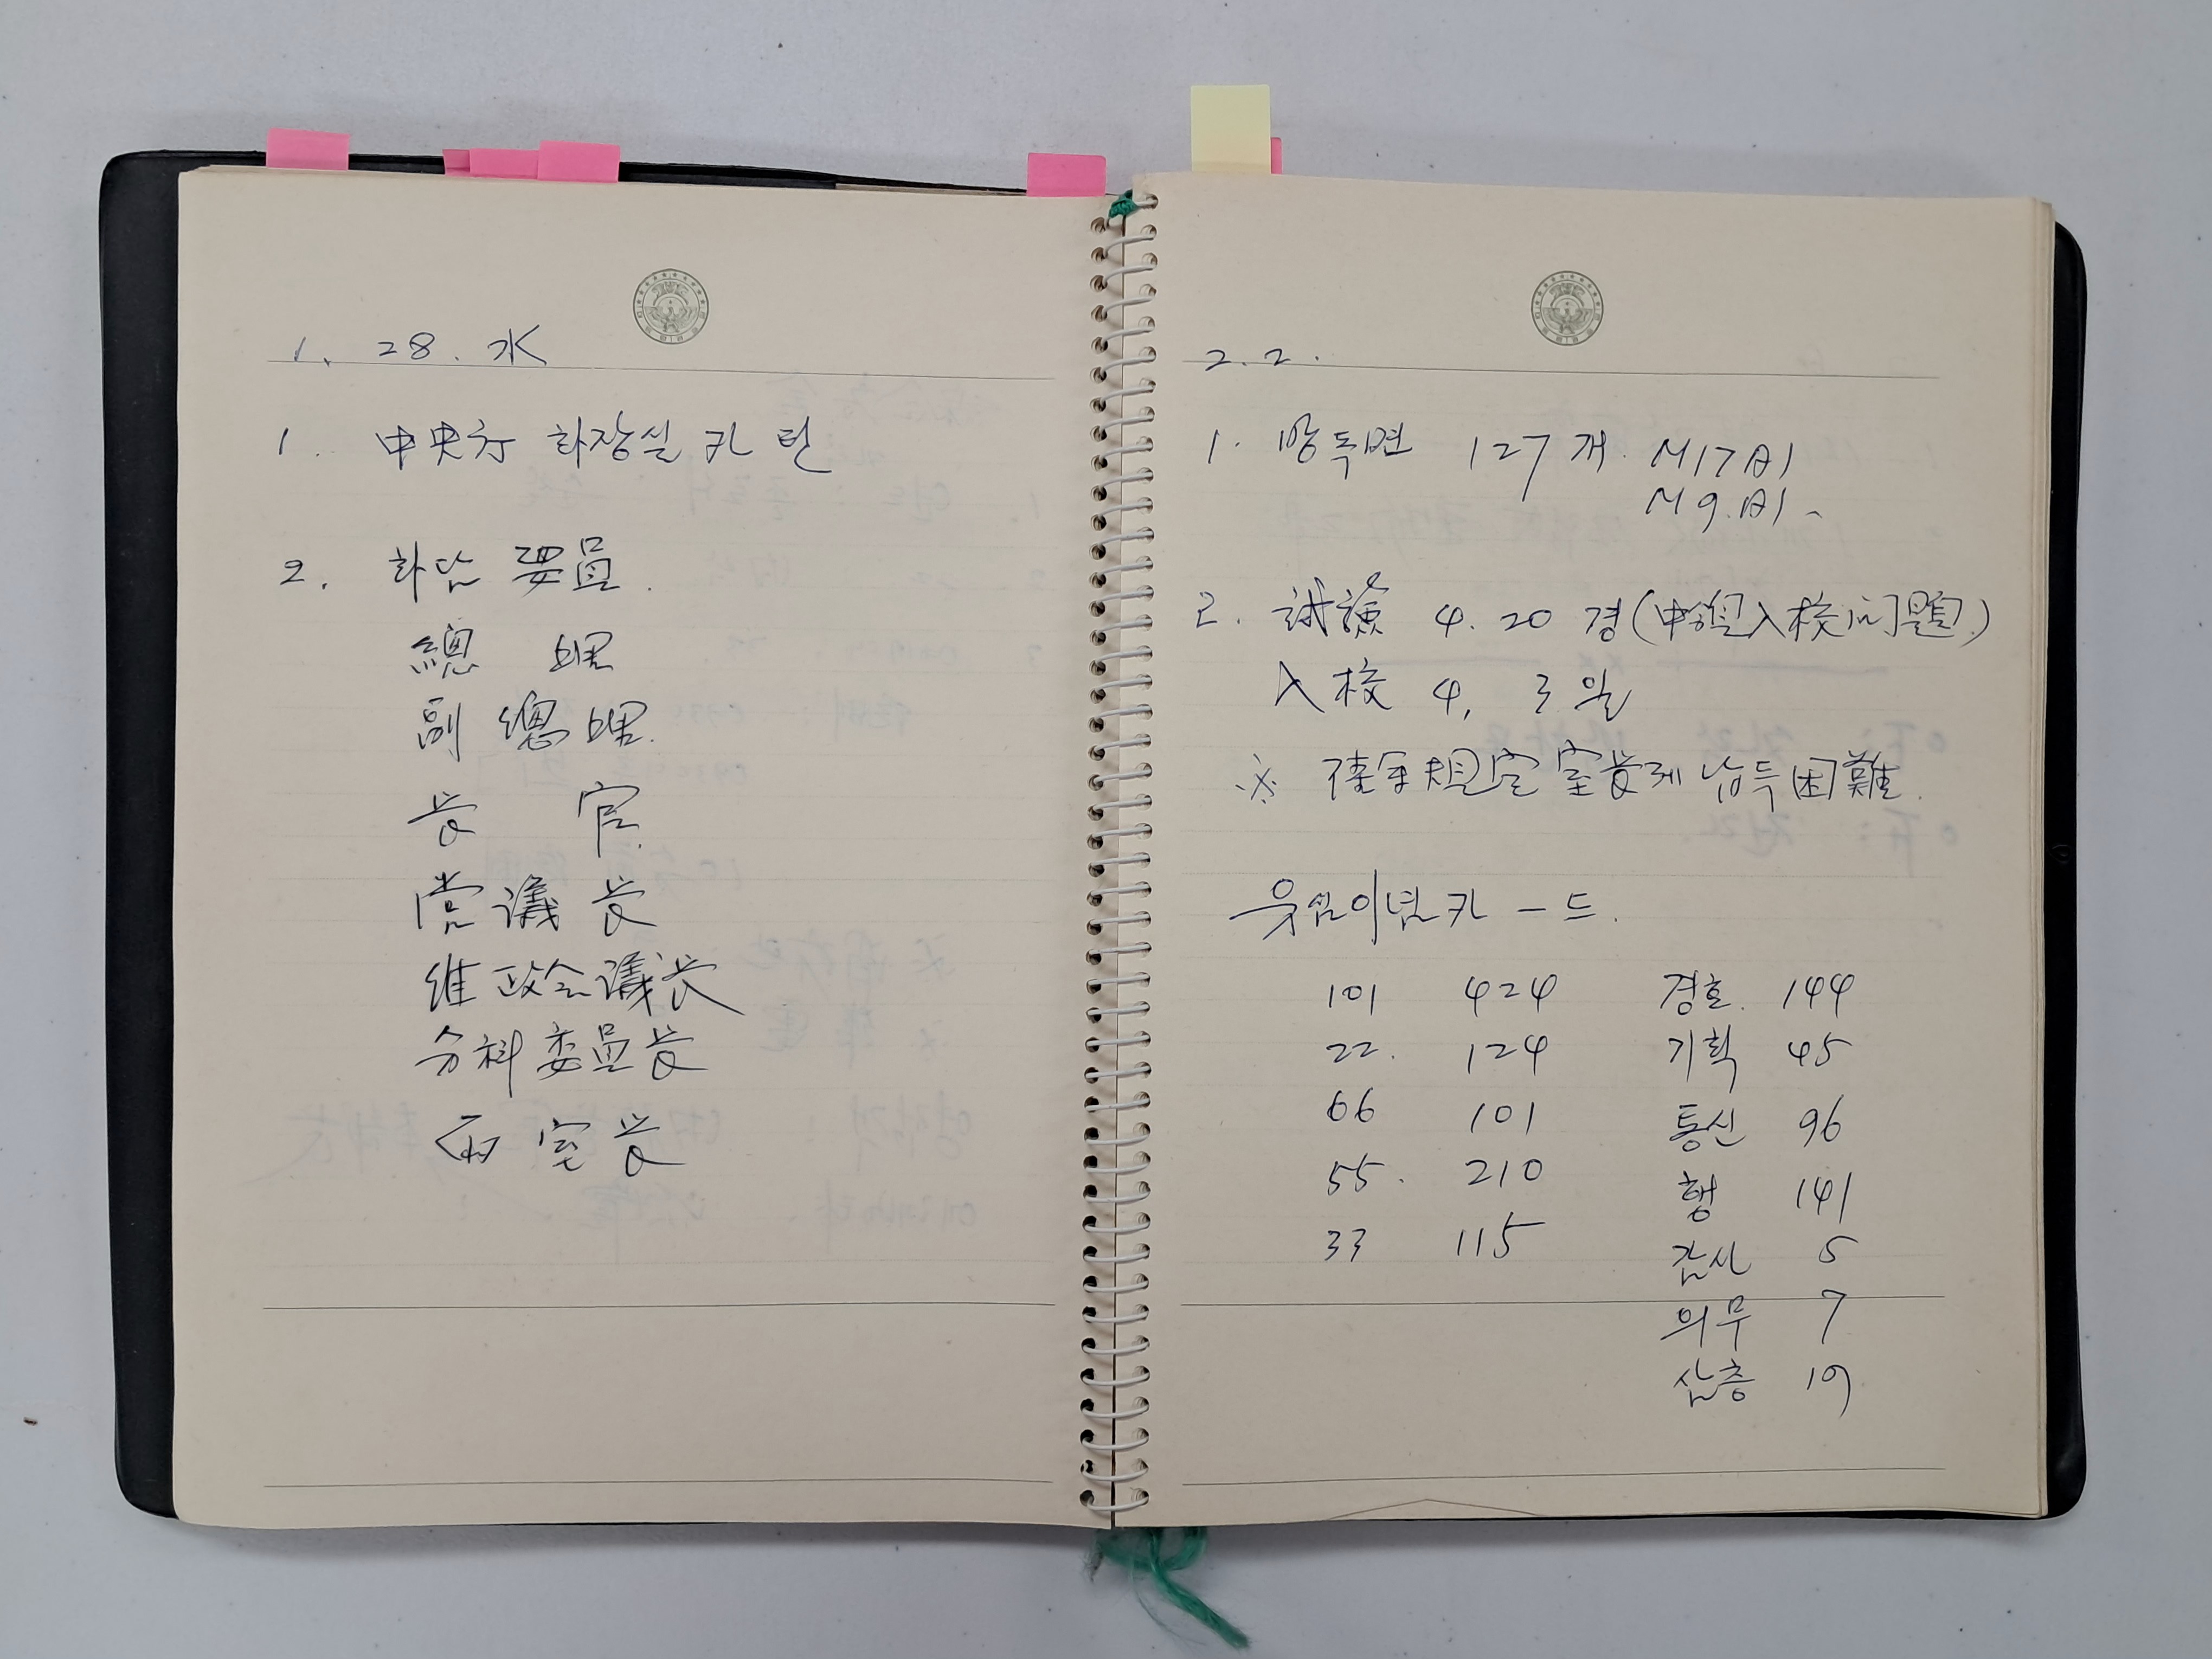 1. 28. 水
1. 中央庁 화장실 카 텐
2. 화담 要員.
總 理
副 總 理.
长 官.
党 議 长
維 政会議长
分科 委員长
両 室长
2. 2.
1. 방독면 127개. M17A1
M9.A1.
2. 試驗 4. 20 경(中領入校问題.)
入校 4. 3일
※ 規定 室长께 납득困難.
유신이념카-드.
101 424 경호. 144
22. 124 기획 45
66 101 통신 96
55. 210 행 141
33 115 감사 5
의무 7
삼층 19